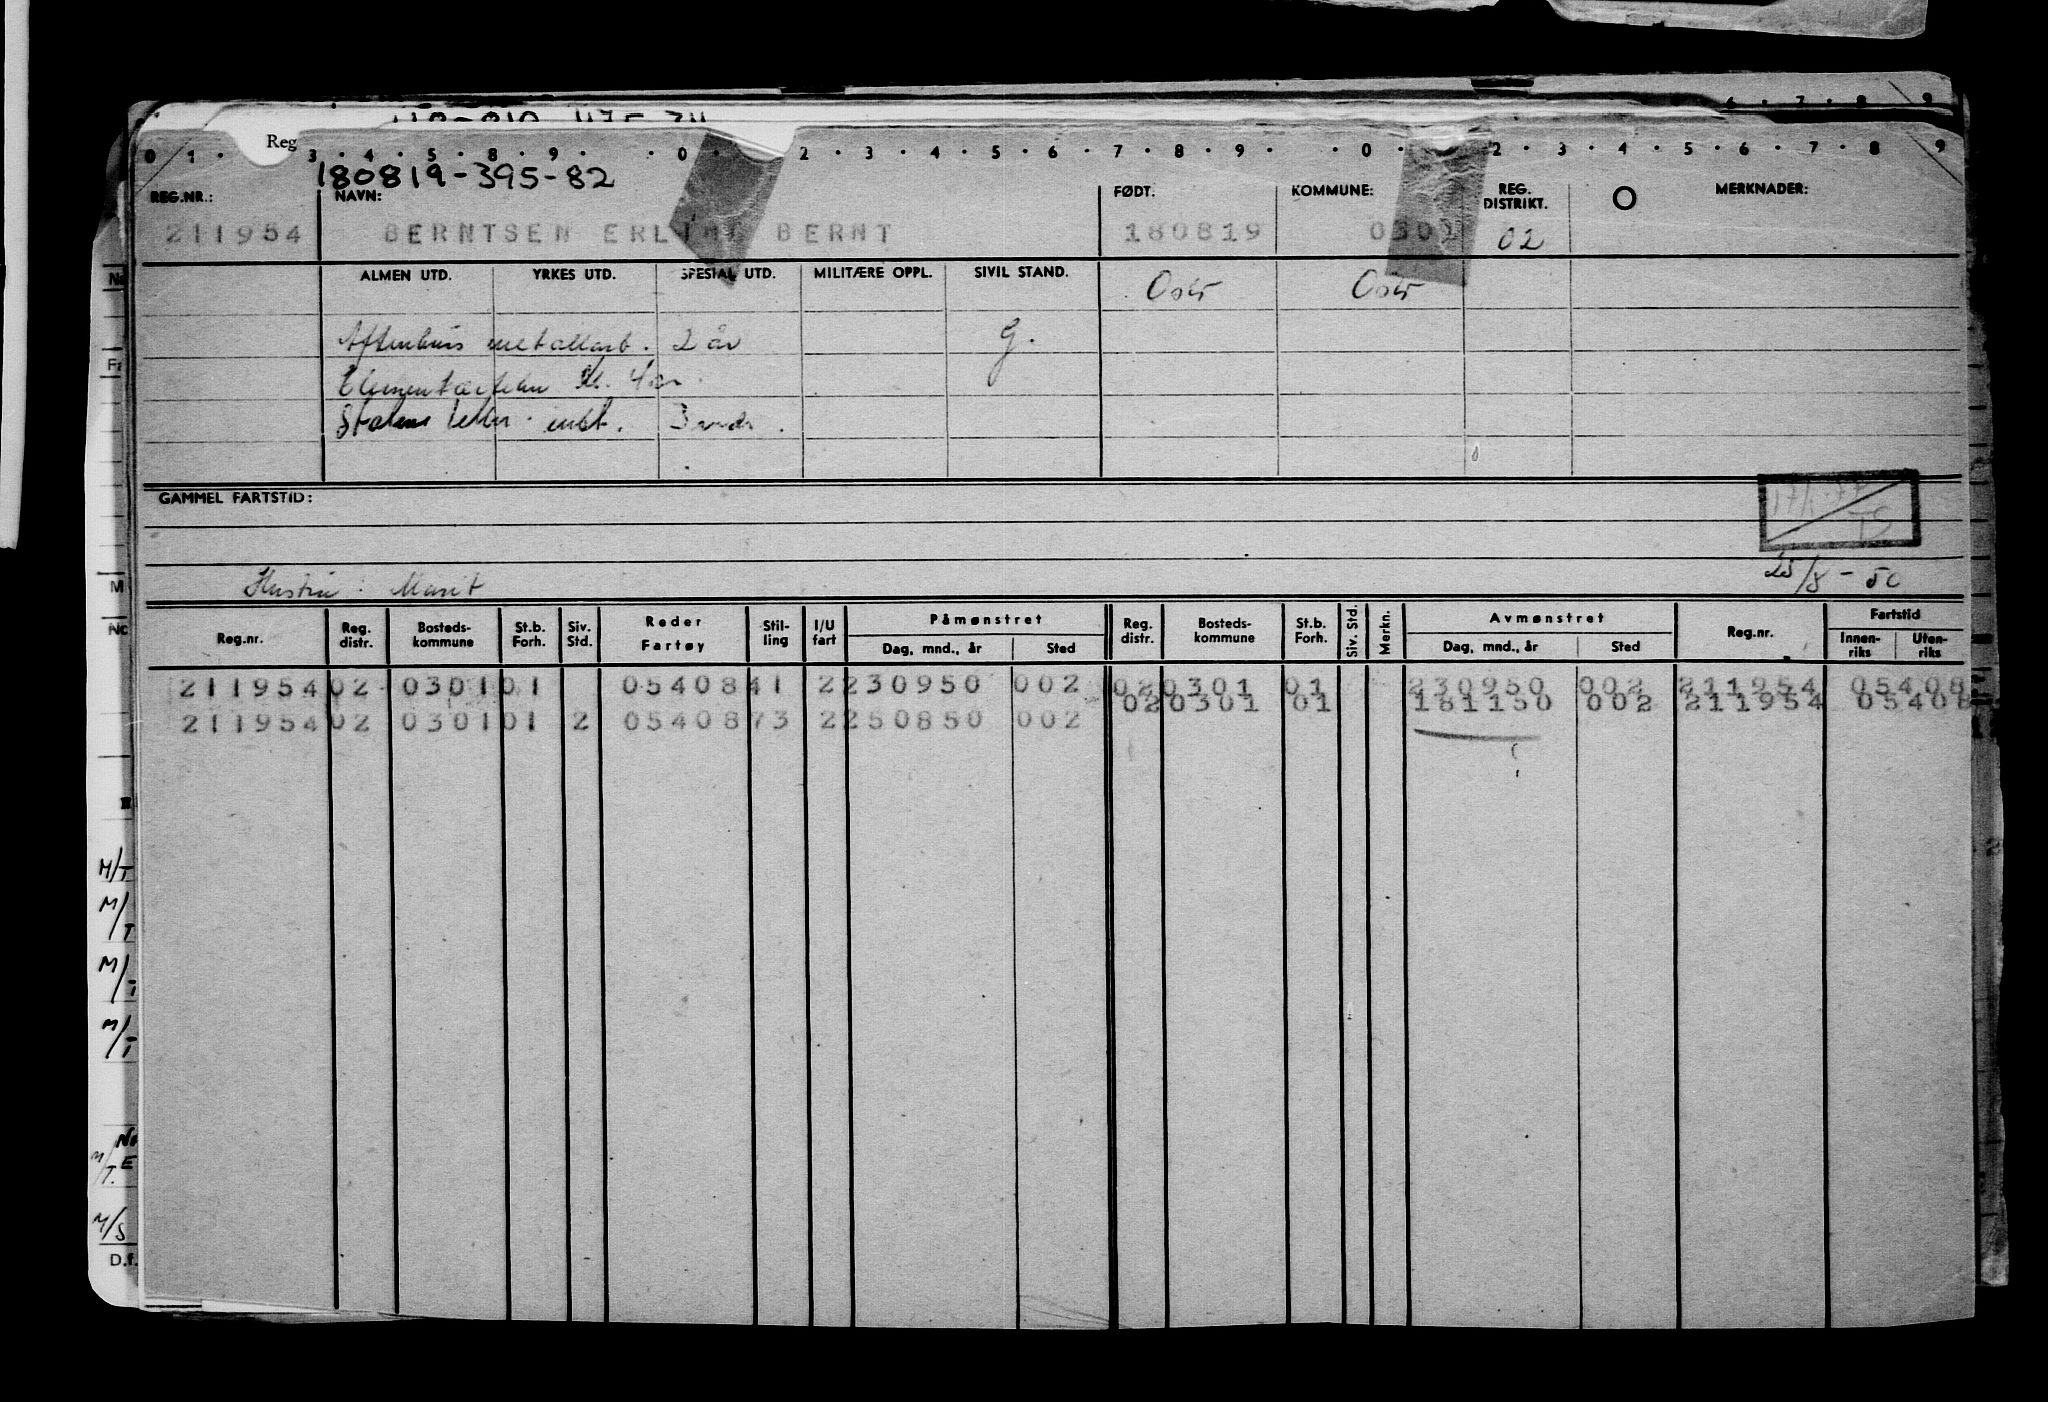 Reg
0 1 . 3 . 4 . 5 . 8 . 9 . . 0 2 . 3 . 4 . 5 . 6 . 7 . 8 . 9 . . 0 2 . 3 . 4 . 5 . 6 . 7 . 8 9
180819-395-82
REG.NR.: NAVN: FØDT. KOMMUNE: REG. DISTRIKT. MERKNADER:
211954 BERNTSEN ERLING BERNT 180819 0301 02
ALMEN UTD. YRKES UTD. SPESIAL UTD. MILITÆRE OPPL. SIVIL STAND. Oslo Oslo
Aftenkurs metallarb. 2 år G.
Elementærtekn. 4 år
Statens tekn. inst. 3 mdr.
GAMMEL FARTSTID:
TS
25/8 - 50
Hustru : Marit
Reg.nr. Reg. distr. Bosteds-kommune St.b. Forh. Siv. Std. Reder Fartøy Stil-ling I/U fart Påmønstret Dag, mnd., år Sted Reg. distr. Bosteds-kommune St.b. Forh. Siv. Std. Merkn. Avmønstret Dag, mnd., år Sted Reg.nr. Fartstid Innen-riks Uten-riks
211954 02 0301 01 05408 41 2 230950 002 02 0301 01 230950 002 211954 05408
02 0301 01 181150 002 211954 05408
211954 02 0301 01 2 05408 73 2 250850 002
M/T
M/T
M/T
M/T
M/T.
M/S
D.f.